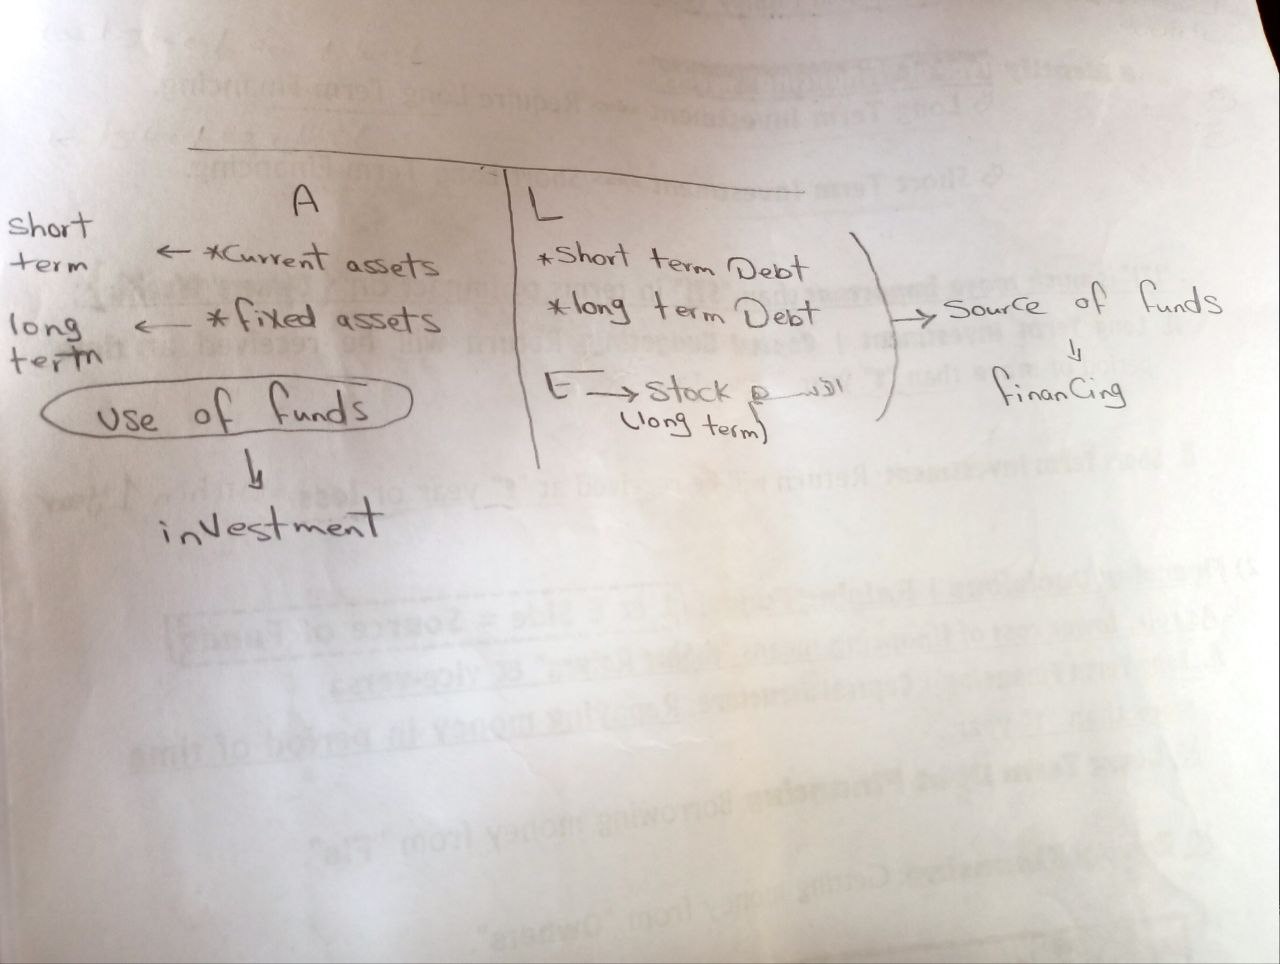 A
short
term
← *Current assets
long
term
← *fixed assets
use of funds
↓
investment
L
*Short term Debt
*long term Debt
E → Stock
(long term)
→ Source of funds
↓
financing